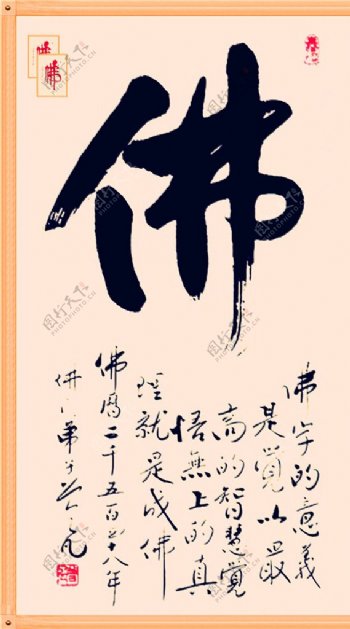 佛
佛
佛
佛字的意義
是覺以最
高的智慧覺
悟無上的真
理就是成佛
佛曆二千五百十八年
佛門弟子
图行天下
PHOTOPHOTO.CN